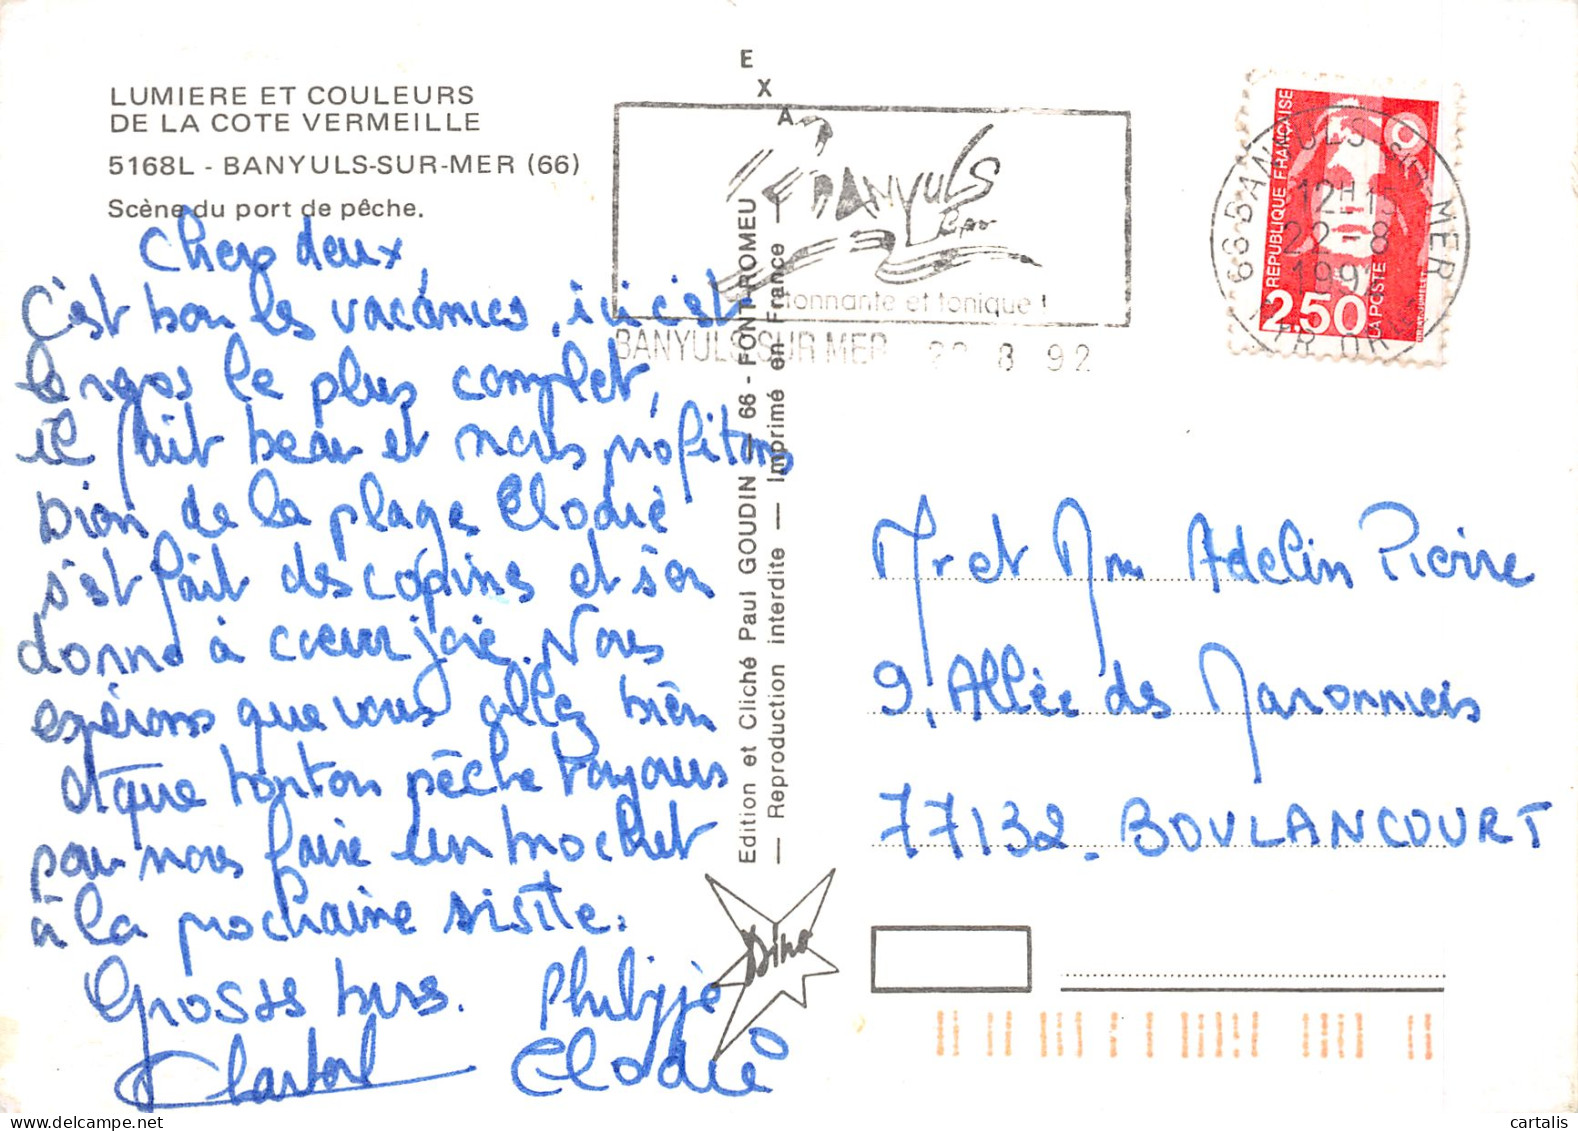 LUMIERE ET COULEURS
DE LA COTE VERMEILLE
5168L - BANYULS-SUR-MER (66)
Scène du port de pêche.
Chers deux,
C'est bon les vacances, ici c'est
le repos le plus complet,
il fait beau et nous profitons
bien de la plage Elodie
s'est fait des copines et s'en
donne à coeur joie. Nous
espérons que vous allez bien
et que tonton pêche toujours
pour nous faire un brochet
à la prochaine visite.
Grosses bises. Philippe
Elodie
EXA
BANYULS
tonnante et tonique !
BANYULS SUR MER 22 8 92
Edition et Cliché Paul GOUDIN — 66 - FONT-ROMEU
— Reproduction interdite — Imprimé en France —
Dino
REPUBLIQUE FRANÇAISE
2,50
LA POSTE
66 BANYULS SUR MER
12H15
22-8
199
Mr et Mm Adelin Pierre
9, Allée des Maronniers
77132 - BOULANCOURT
cartalis